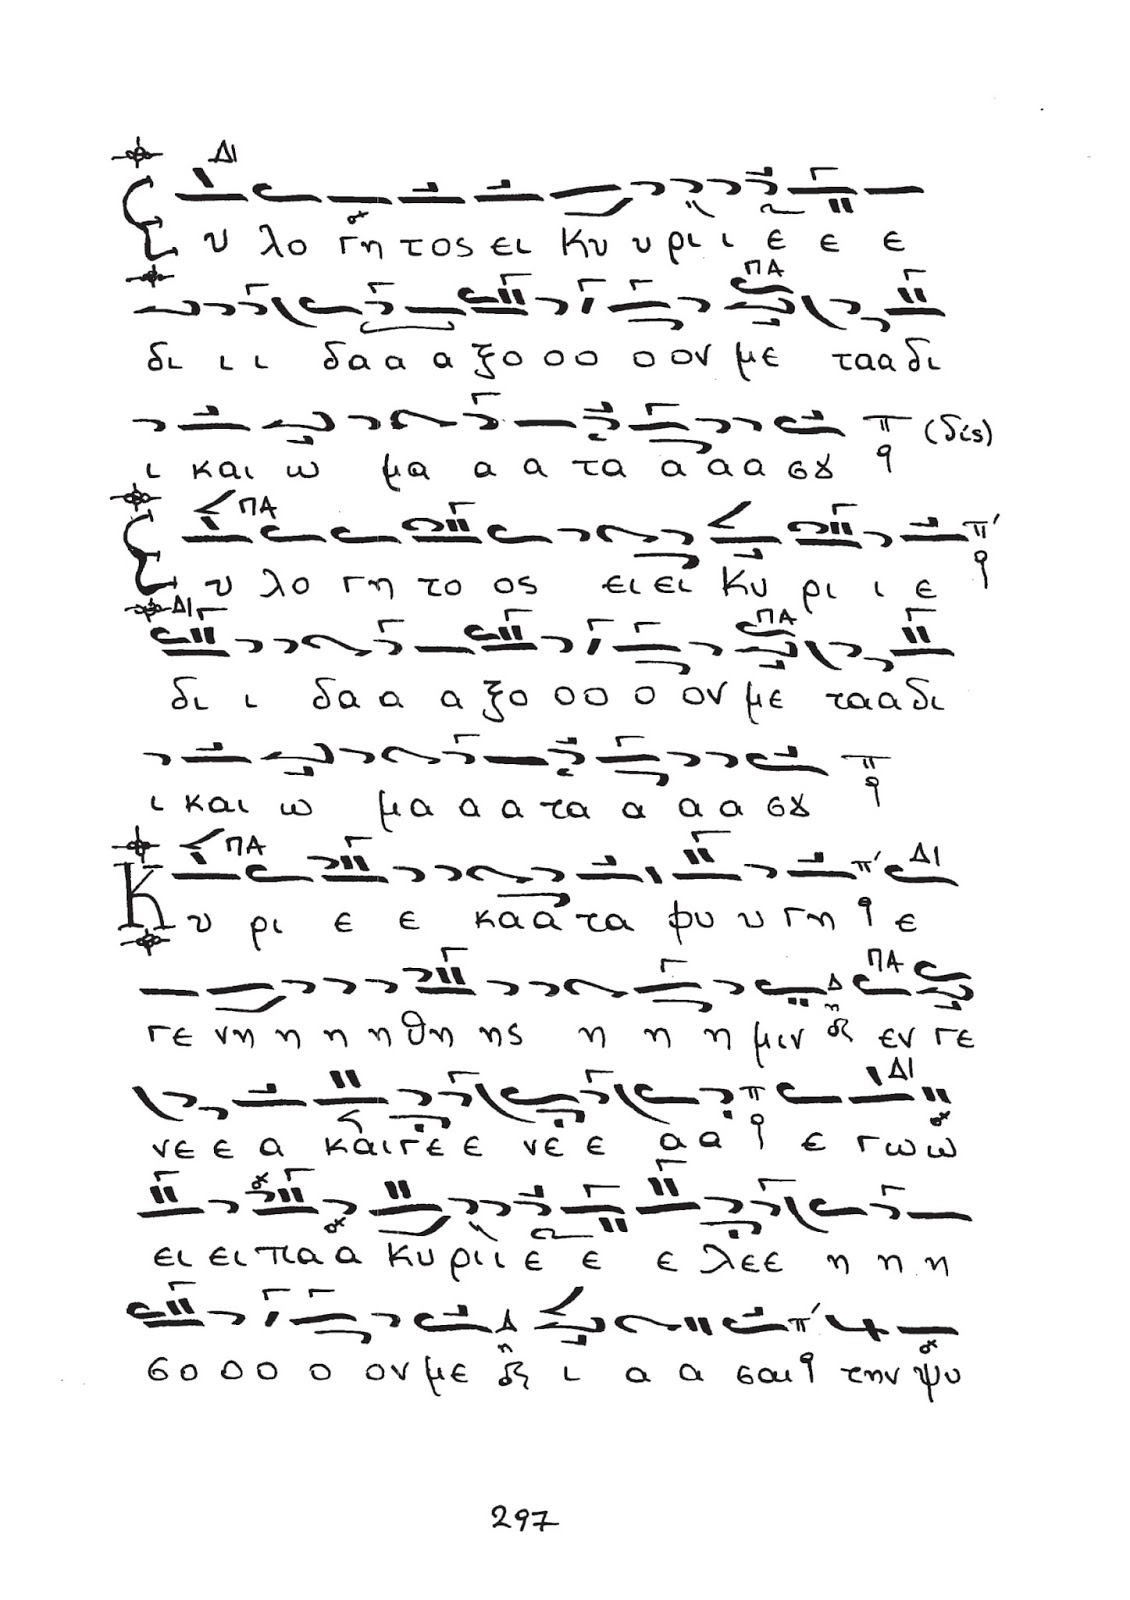 Ευ λο γη τος ει Κυ υ ρι ι ε ε ε
δι ι ι δα α α ξο ο ο ο ον με τα α δι
ι και ω μα α α τα α α α σȣ (δίς)
Ευ λο γη το ος ει ει Κυ ρι ι ε
δι ι δα α α ξο ο ο ο ον με τα α δι
ι και ω μα α α τα α α α σȣ
Κυ ρι ε ε κα α τα φυ υ γη ε
γε νη η η η θη ης η η η μιν εν γε
νε ε α και γε ε νε ε α α ε γω ω
ει ει πα α Κυ ρι ι ε ε ε λε ε η η η
σο ο ο ο ον με ι α α σαι την ψυ
297